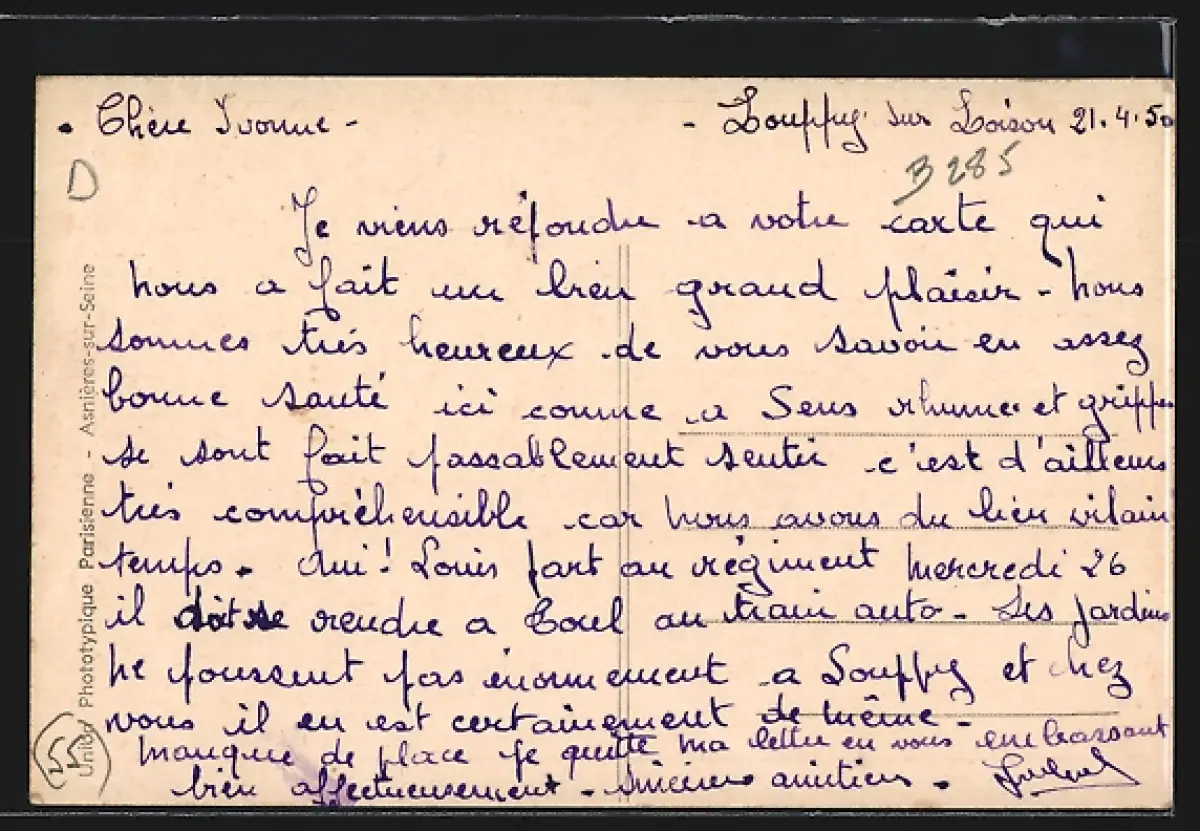 Chère Yvonne - - Louppy sur Loison 21.4.50
D
B 285
Je viens répondre a votre carte qui
nous a fait un bien grand plaisir - nous
sommes très heureux de vous savoir en assez
bonne santé ici comme a Sens rhumes et grippes
se sont fait passablement sentir c'est d'ailleurs
très compréhensible car nous avons du bien vilain
temps. Oui! Louis part au régiment mercredi 26
il doit se rendre a Toul au train auto - Les jardins
ne poussent pas énormement a Louppy et chez
vous il en est certainement de même -
manque de place je quitte ma lettre en vous embrassant
bien affectueusement - sincères amitiés.
Union Phototypique Parisienne - Asnières-sur-Seine
55